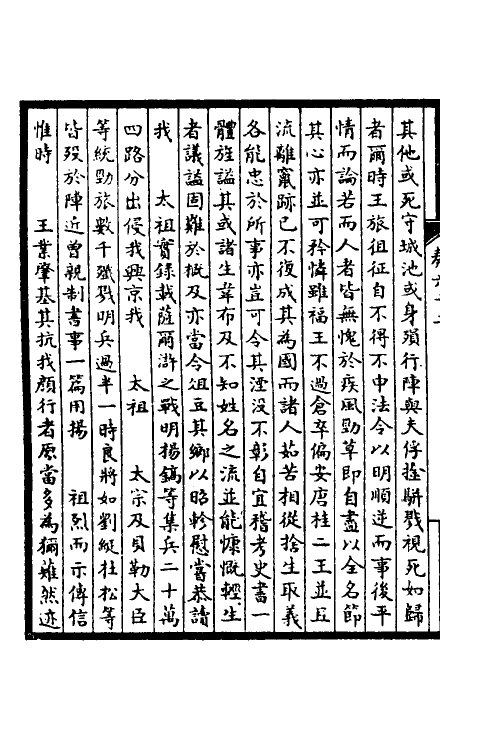 其他或死守城池或身殞行陣與夫俘擒駢戮視死如歸
者爾時王旅徂征自不得不申法令以明順逆而事後平
情而論若而人者皆無愧於疾風勁草即自盡以全名節
其心亦並可矜憐雖福王不過倉卒偏安唐桂二王並且
流離竄跡已不復成其為國而諸人茹苦相從捨生取義
各能忠於所事亦豈可令其湮没不彰自宜稽考史書一
體旌謚其或諸生韋布及不知姓名之流並能慷慨輕生
者議謚固難於概及亦當令俎豆其鄉以昭軫慰當恭讀
我 太祖實錄載薩爾滸之戰明楊鎬等集兵二十萬
四路分出侵我興京我 太祖 太宗及貝勒大臣
等統勁旅數千殲戮明兵過半一時良將如劉綎杜松等
皆歿於陣近曾親制書事一篇用揚 祖烈而示傳信
惟時 王業肇基其抗我顏行者原當多為獮薙然迹
卷六十二